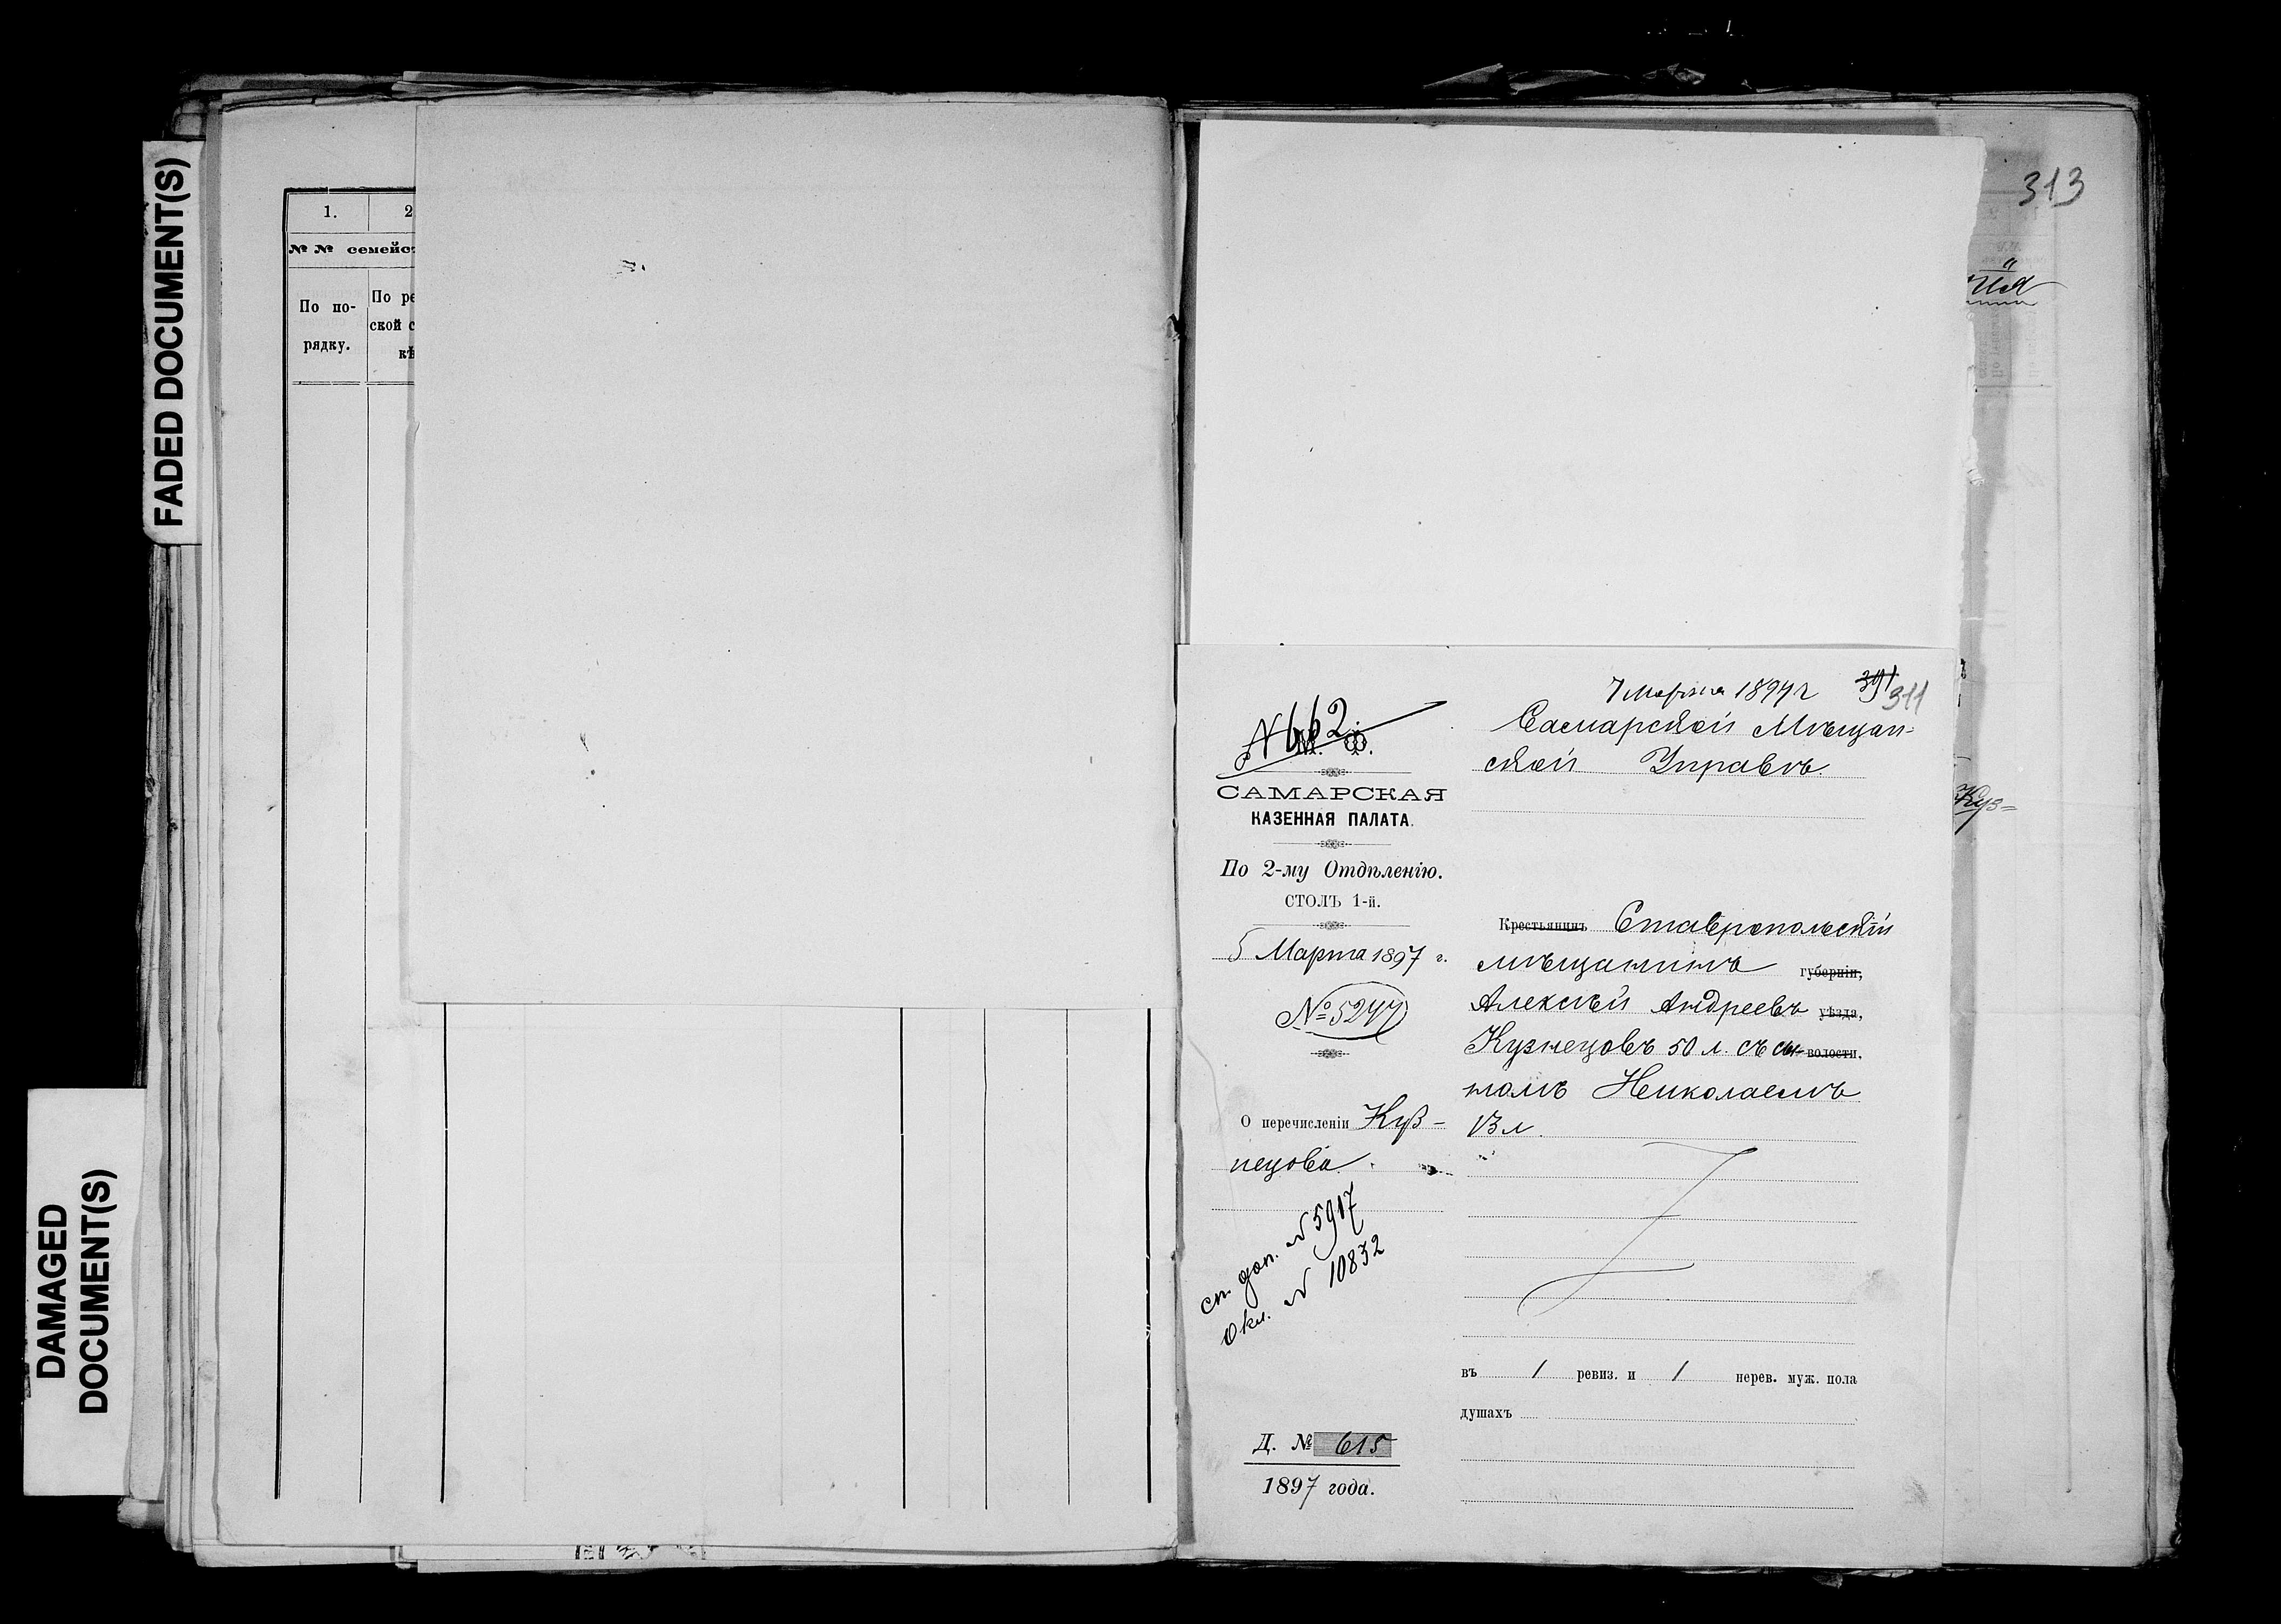 FADED DOCUMENT(S)
DAMAGED
DOCUMENT(S)
1.
2
№№ семейс
По по-
рядку.
По ре
ской с
кѣ
313
Куз=
7 марта 1897 г
391
311
N 662
М. Ф.
САМАРСКАЯ
КАЗЕННАЯ ПАЛАТА.
По 2-му Отдѣленію.
СТОЛЪ 1-й.
5 Марта 1897 г.
№ 5244
О перечисленіи Куз-
нецова
сп. доп. № 5917
Окл. № 10832
Д. № 615
1897 года.
Самарской Мѣщан-
ской Управѣ.
Крестьянинъ Ставропольскій
мѣщанинъ губерніи,
Алексѣй Андреевъ уѣзда,
Кузнецовъ 50 л. съ сы- волости,
номъ Николаемъ
13 л.
въ 1 ревиз. и 1 нерев. муж. пола
душахъ